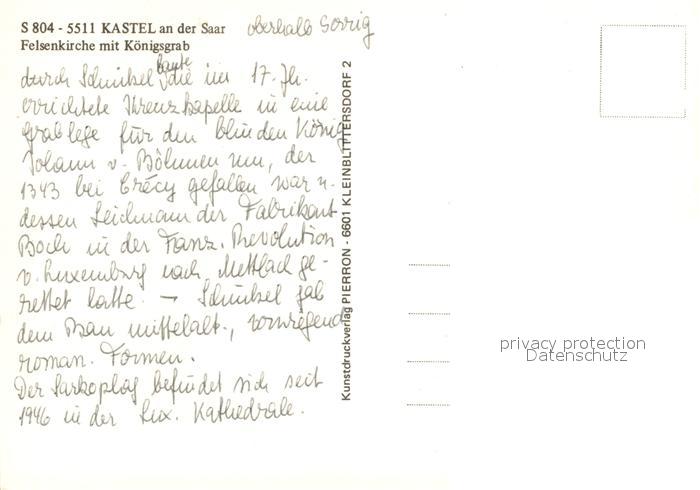 S 804 - 5511 KASTEL an der Saar oberhalb Serrig
Felsenkirche mit Königsgrab
baute
durch Schinkel die im 17. Jh.
errichtete Kreuzkapelle in eine
Grablege für den blinden König
Johann v. Böhmen um, der
1343 bei Crécy gefallen war u.
dessen Leichnam der Fabrikant
Boch in der Franz. Revolution
v. Luxemburg nach Mettlach ge-
rettet hatte. → Schinkel gab
dem Bau mittelalt., vorwiegend
roman. Formen.
Der Sarkophag befindet sich seit
1946 in der Lux. Kathedrale.
Kunstdruckverlag PIERRON - 6601 KLEINBLITTERSDORF 2
privacy protection
Datenschutz